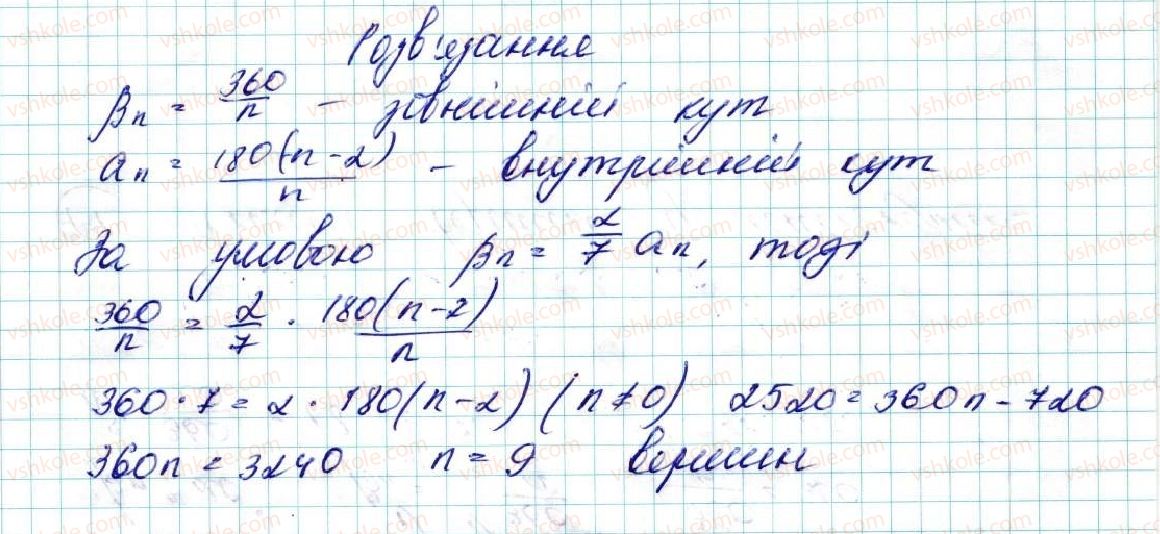 Розв'язання
βn = 360/n – зовнішній кут
an = 180(n-2)/n – внутрішній кут
За умовою βn = 2/7 an, тоді
360/n = 2/7 · 180(n-2)/n
360·7 = 2·180(n-2) (n≠0) 2520 = 360n - 720
360n = 3240 n = 9 вершин